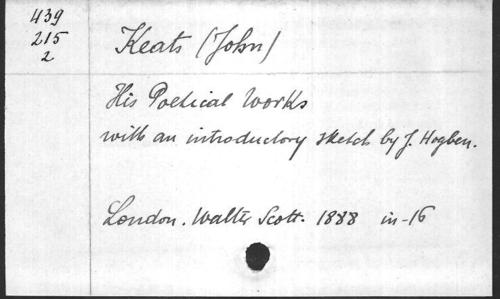 439
215
2
Keats (John)
His Poetical Works
with an introductory sketch by J. Hogben.
London. Walter Scott. 1888 in-16